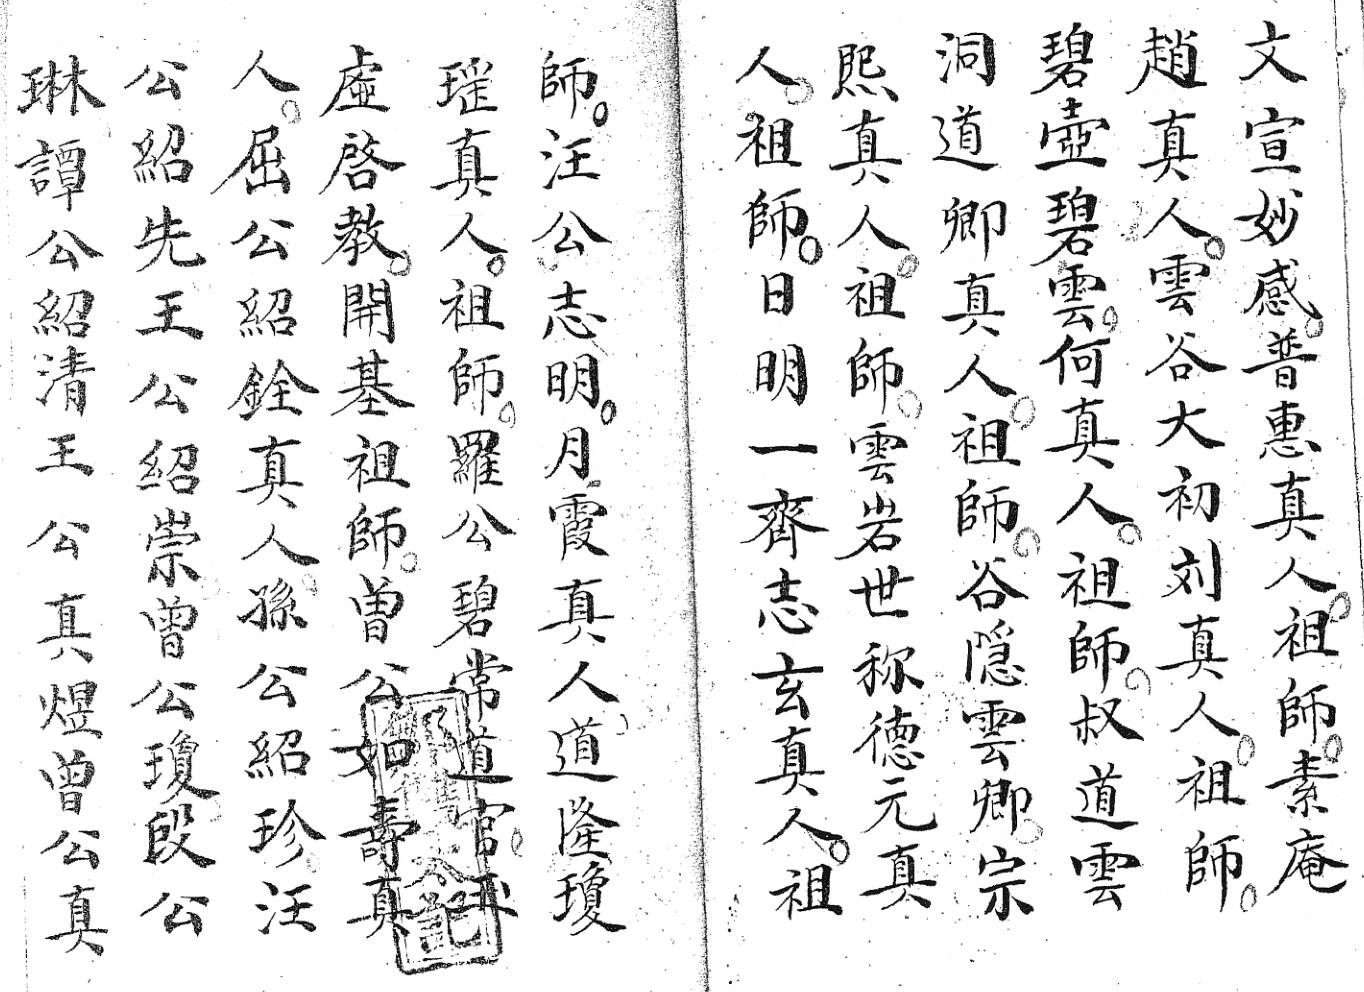 文宣妙感。普惠真人。祖師。素庵
趙真人。雲谷大初刘真人。祖師。
碧壺碧雲。何真人。祖師。叔道雲
洞道卿真人。祖師。谷隠雲卿。宗
熙真人。祖師。雲岩世称德元真
人。祖師。日明一齊志玄真人。祖
師。汪公志明。月霞真人道隆瓊
瑤真人。祖師。羅公碧常道宫
虛啓教。開基祖師。曾公如壽真
人。屈公紹銓真人。孫公紹珍。汪
公紹先王公紹崇曾公瓊段公
琳譚公紹清王公真煜曾公真